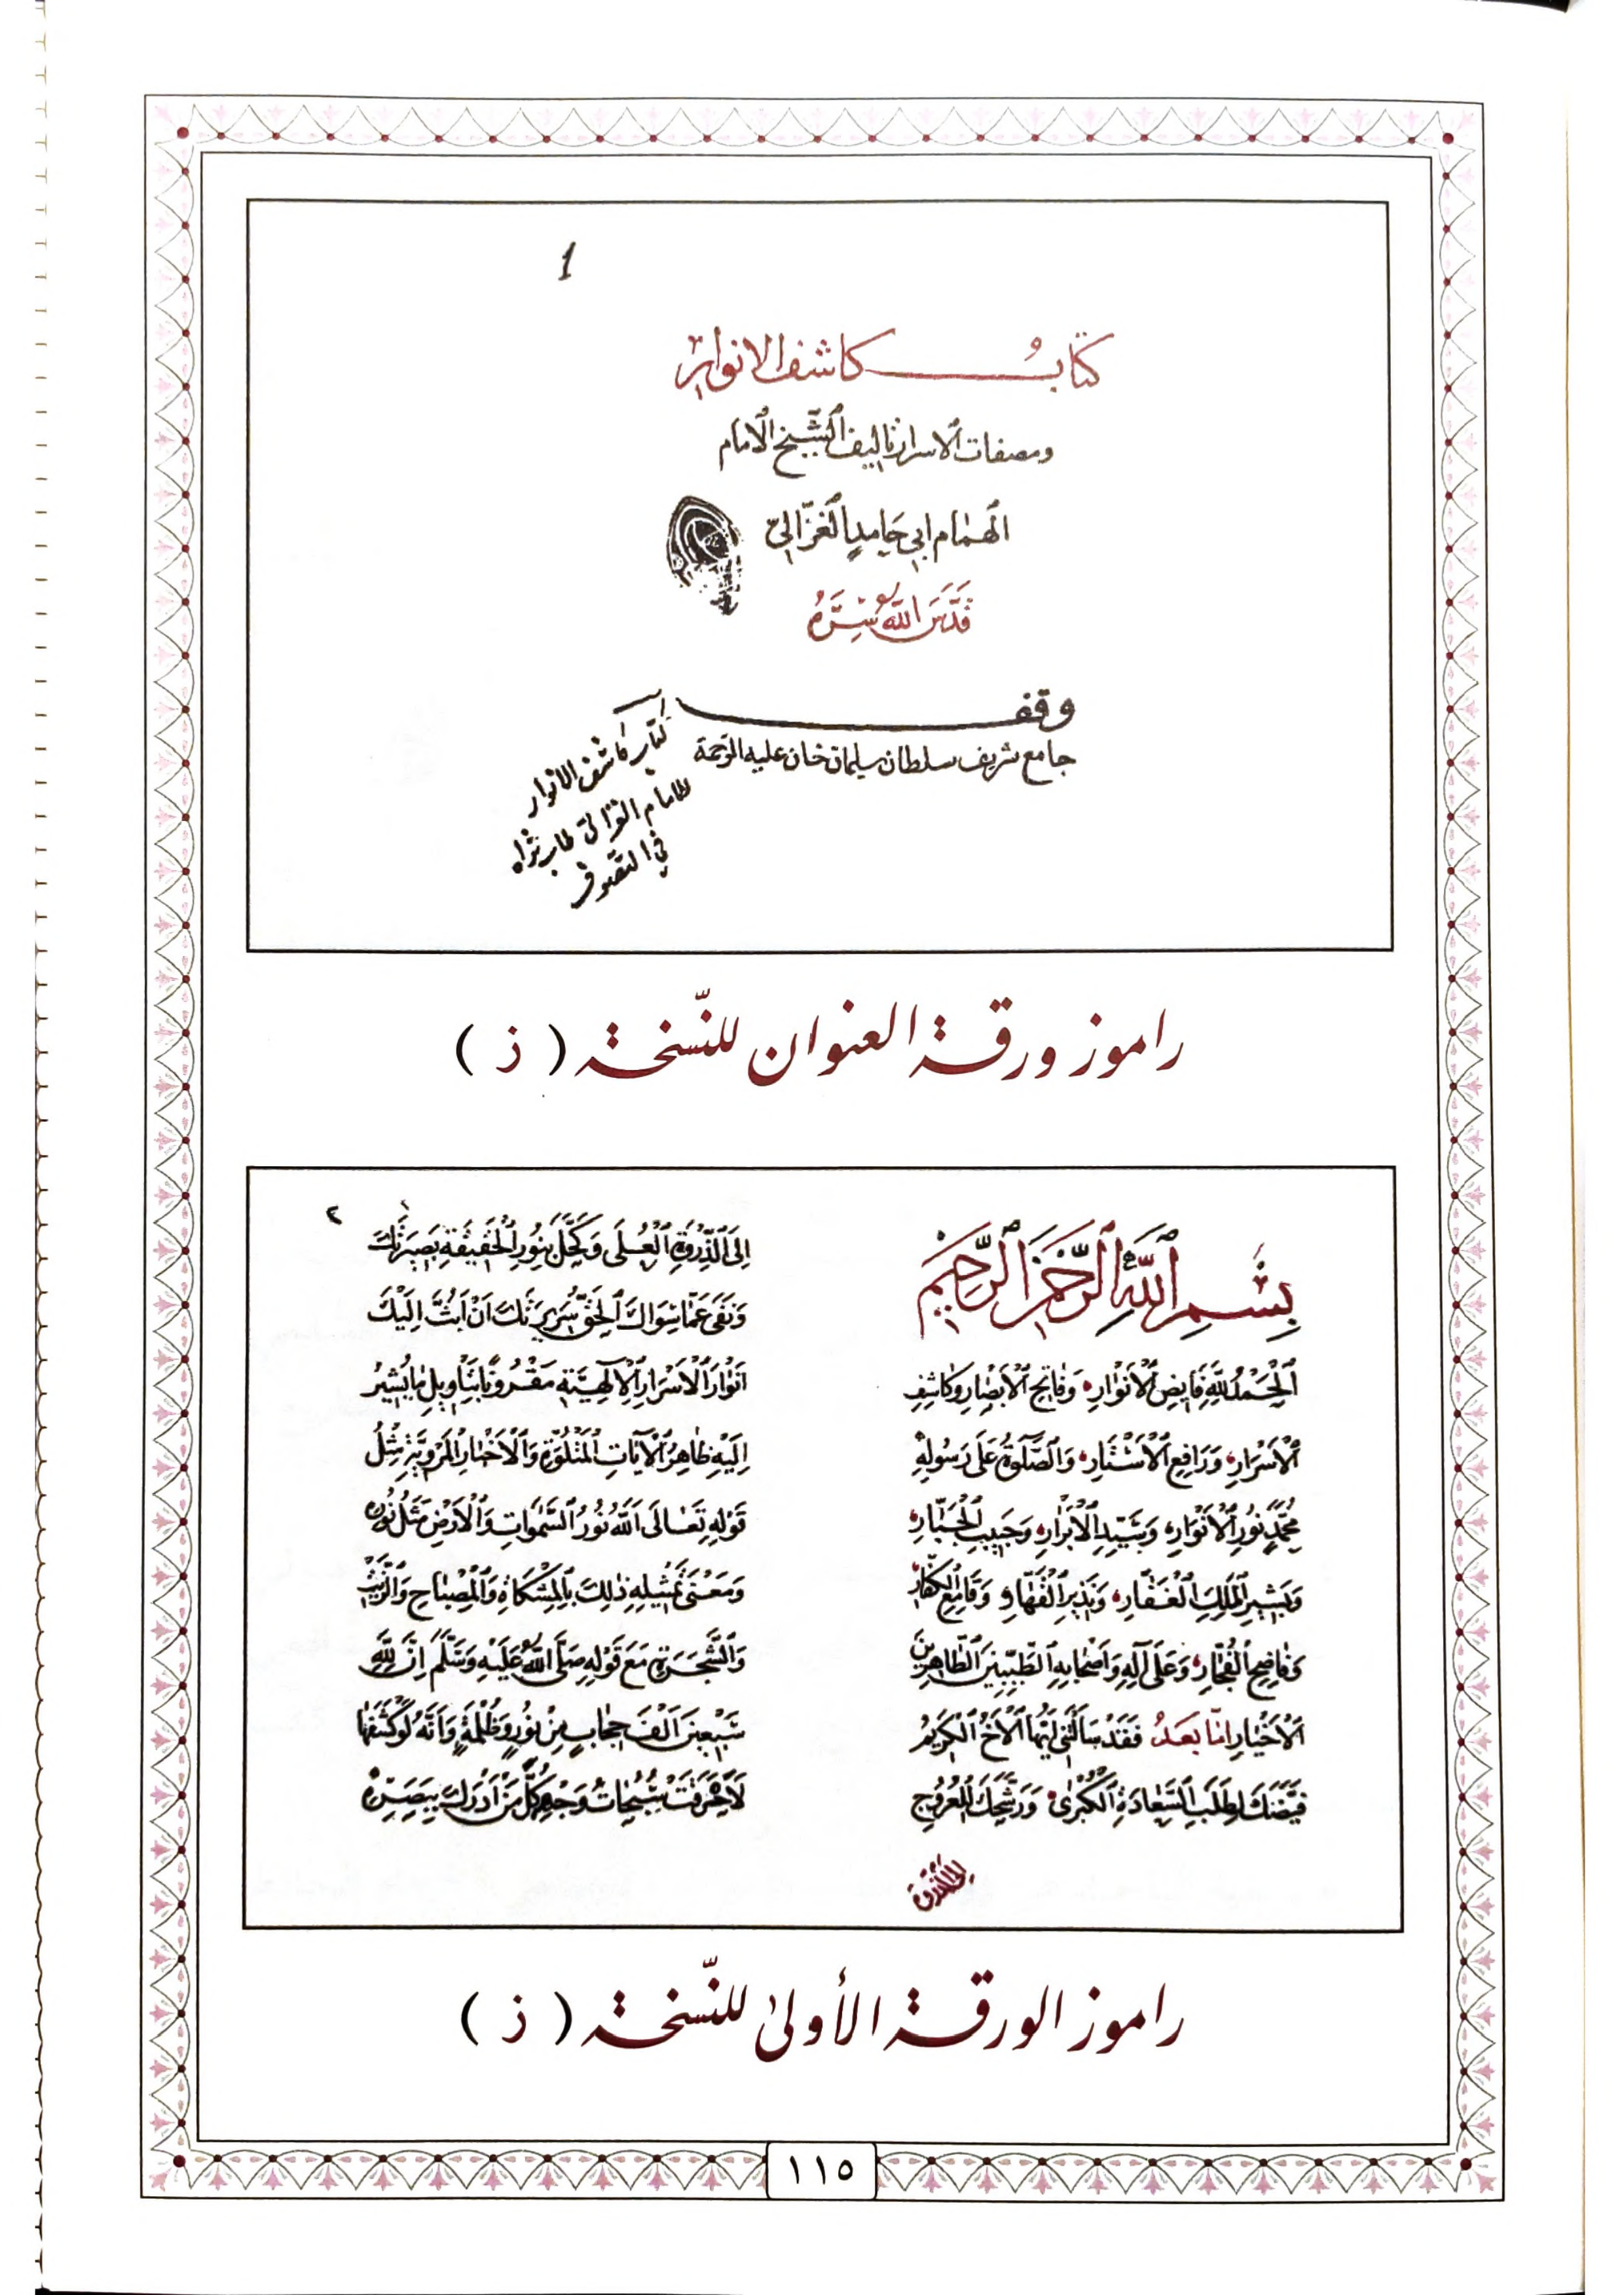 1
كتاب كاشف الانوار
ومصفات الاسرار تاليف الشيخ الامام
الهمام ابي حامد الغزالي
قدس الله سره
وقف
جامع شريف سلطان سليمان خان عليه الرحمة
كتاب كاشف الانوار
للامام الغزالي طاب ثراه
في التصوف
راموز ورقة العنوان للنسخة ( ذ )
بِسْمِ اللَّهِ الرَّحْمَنِ الرَّحِيمِ
اَلْحَمْدُ لِلَّهِ فَايِضِ الْاَنْوَارِ وَفَاتِحِ الْاَبْصَارِ وَكَاشِفِ
الْاَسْرَارِ وَرَافِعِ الْاَسْتَارِ وَالصَّلٰوةُ عَلَى رَسُولِهِ
مُحَمَّدٍ نُورِ الْاَنْوَارِ وَسَيِّدِ الْاَبْرَارِ وَحَبِيبِ الْجَبَّارِ
وَبَشِيرِ الْمَلِكِ الْغَفَّارِ وَنَذِيرِ الْقَهَّارِ وَقَامِعِ الْكُفَّارِ
وَفَاضِحِ الْفُجَّارِ وَعَلَى آلِهِ وَاَصْحَابِهِ الطَّيِّبِينَ الطَّاهِرِينَ
الْاَخْيَارِ اَمَّا بَعْدُ فَقَدْ سَاَلْتَنِي اَيُّهَا الْاَخُ الْكَرِيمُ
قَيَّضَكَ لِطَلَبِ السَّعَادَةِ الْكُبْرَى وَرَشَّحَكَ لِلْعُرُوجِ
٢
اِلَى الذِّرْوَةِ الْعُلَى وَكَحَّلَ بِنُورِ الْحَقِيقَةِ بَصِيرَتَكَ
وَنَقَّى عَمَّا سِوَاكَ الْحَقِّ سَرِيرَتَكَ اَنْ اَبُثَّ اِلَيْكَ
اَنْوَارَ الْاَسْرَارِ الْاِلٰهِيَّةِ مَقْرُونًا بِتَاوِيلِ مَا يُشِيرُ
اِلَيْهِ ظَاهِرُ الْآيَاتِ الْمَتْلُوَّةِ وَالْاَخْبَارِ الْمَرْوِيَّةِ مِثْلُ
قَوْلِهِ تَعَالَى اَللهُ نُورُ السَّمٰوَاتِ وَالْاَرْضِ مَثَلُ نُورِهِ
وَمَعْنَى تَمْثِيلِهِ ذٰلِكَ بِالْمِشْكَاةِ وَالْمِصْبَاحِ وَالزَّيْتِ
وَالشَّجَرَةِ مَعَ قَوْلِهِ صَلَّى اللهُ عَلَيْهِ وَسَلَّمَ اِنَّ لِلّٰهِ
سَبْعِينَ اَلْفَ حِجَابٍ مِنْ نُورٍ وَظُلْمَةٍ وَاَنَّهُ لَوْ كَشَفَهَا
لَاَحْرَقَتْ سُبُحَاتُ وَجْهِهِ كُلَّ مَنْ اَدْرَكَ بَصَرُهُ
راموز الورقة الأولىٰ للنسخة ( ذ )
١١٥